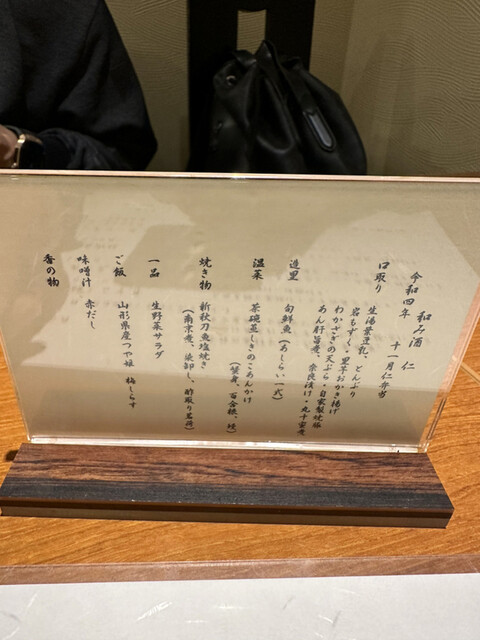 和み酒 仁
令和四年 十一月仁弁当
口取り 生湯葉豆乳、とんぶり
岩もずく・里芋おかき揚げ
わかさぎの天ぷら・自家製焼豚
あん肝旨煮、奈良漬け・丸十蜜煮
造里 旬鮮魚(あしらい一式)
温菜 茶碗蒸しきのこあんかけ
(蟹身、百合根、
焼き物 新秋刀魚塩焼き
(南京煮、染卸し、酢取り茗荷)
一品 生野菜サラダ
ご飯 山形県産つや姫 梅しらす
味噌汁 赤だし
香の物